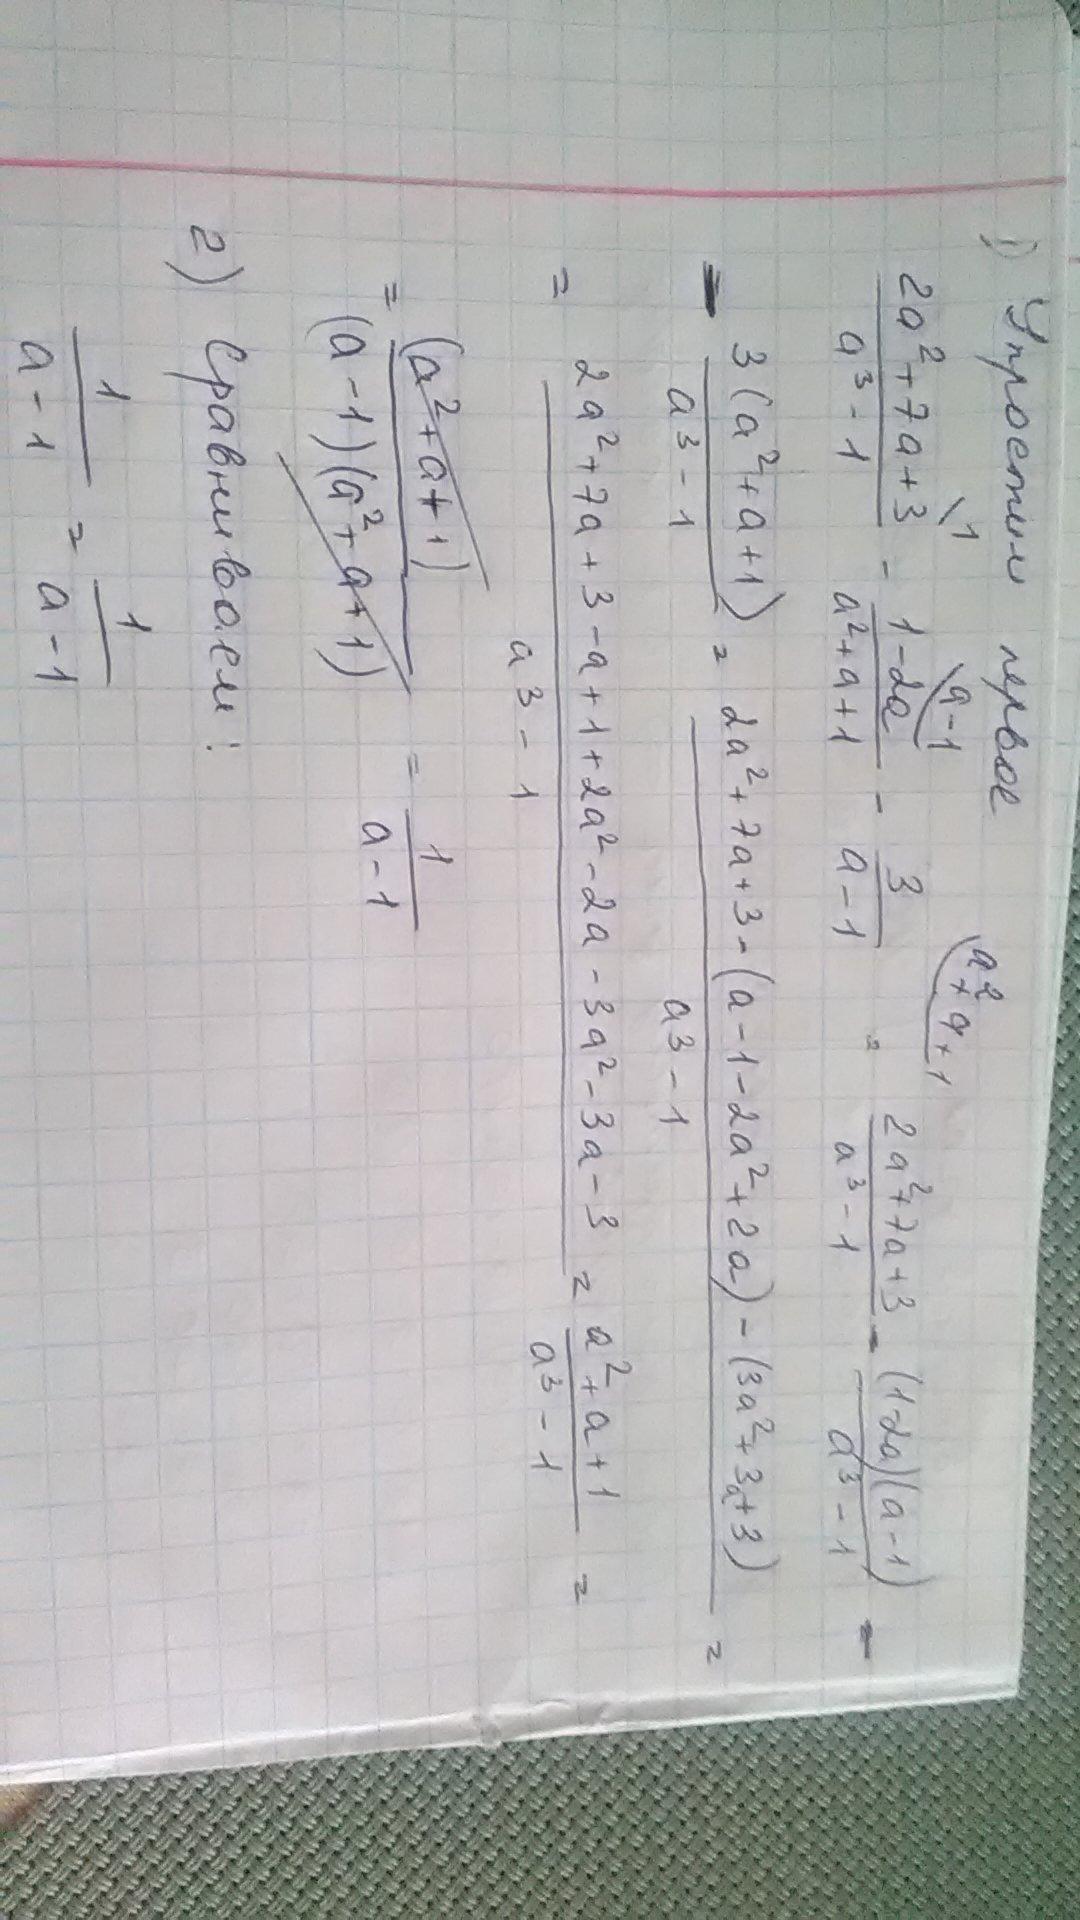 1) Упростим первое
\1 \a-1 (a²+a+1
2a²+7a+3 / a³-1 - 1-2a / a²+a+1 - 3 / a-1 = 2a²+7a+3 / a³-1 - (1-2a)(a-1) / a³-1 -
- 3(a²+a+1) / a³-1 = 2a²+7a+3-(a-1-2a²+2a)-(3a²+3a+3) / a³-1 =
= 2a²+7a+3-a+1+2a²-2a-3a²-3a-3 / a³-1 = a²+a+1 / a³-1 =
= (a²+a+1) / (a-1)(a²+a+1) = 1 / a-1
2) Сравниваем:
1 / a-1 = 1 / a-1